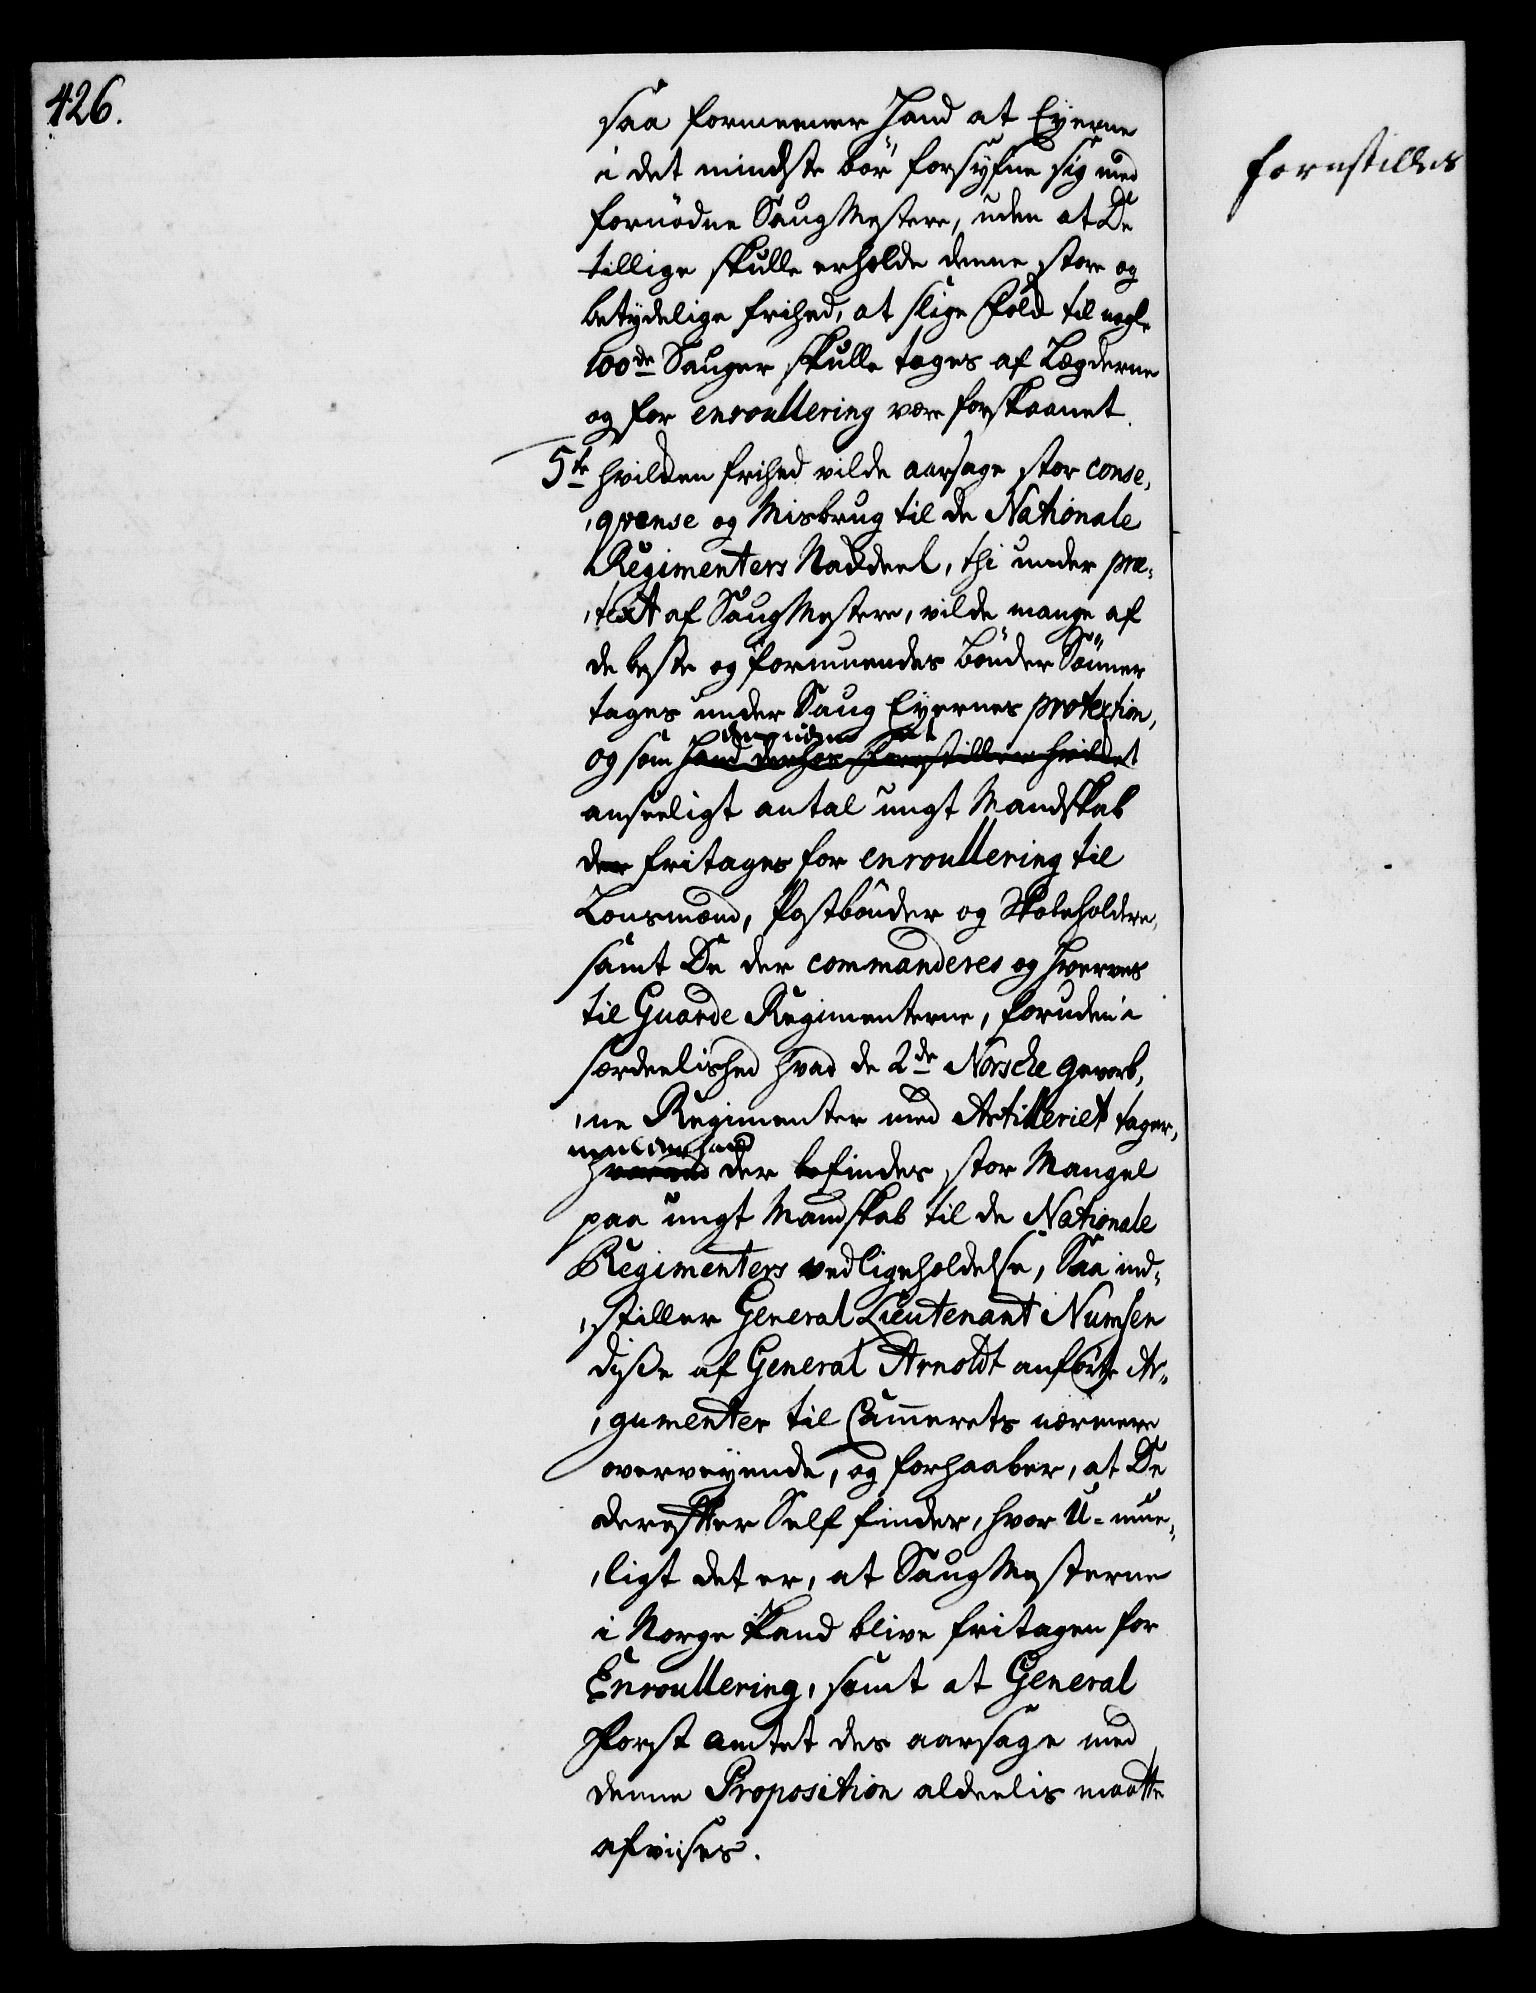 426.
saa formeener Hand at Eyerne
i det mindste bör forsyfne sig med
fornödne SaugMestere, uden at De
tillige skulle erholde denne store og
betydelige frihed, at slige Folk til nogle
100de Sauger skulle tages af Legderne
og for enroullering være forskaanet.
5te hvilken frihed vilde aarsage stor conse,
,qvense og Misbrug til de Nationale
Regimenters Nakdeel, thi under præ,
,text af SaugMestere, vilde mange af
de beste og formuendes Bönder Sönner
tages under Saug Eyernes protextion,
desuden et
og som Hand derhos forestiller hvilket
anseeligt antal ungt Mandskab
der fritages for enroullering til
Lensmænd, Postbönder og Skoleholdere,
samt De der commanderes og hverves
til Guarde Regimenterne, foruden i
særdeelished hvad de 2de Norsche gevorb,
,ne Regimenter med Artilleriet tager,
der befindes stor Mangel
paa ungt Mandskab til de Nationale
Regimenters vedligeholdelse, Saa ind,
,stiller General Lieutenant Numsen
disse af General Arnoldt anförte Ar,
,gumenter til Cammerets nærmere
overveyende, og forhaaber, at De
derefter Self finder, hvor U-mue,
,ligt det er, at SaugMesterne
i Norge kand blive fritagen for
Enroullering, samt at General
Forst amtet des aarsage med
denne Proposition aldeelis maatte
afviises.
forestilles